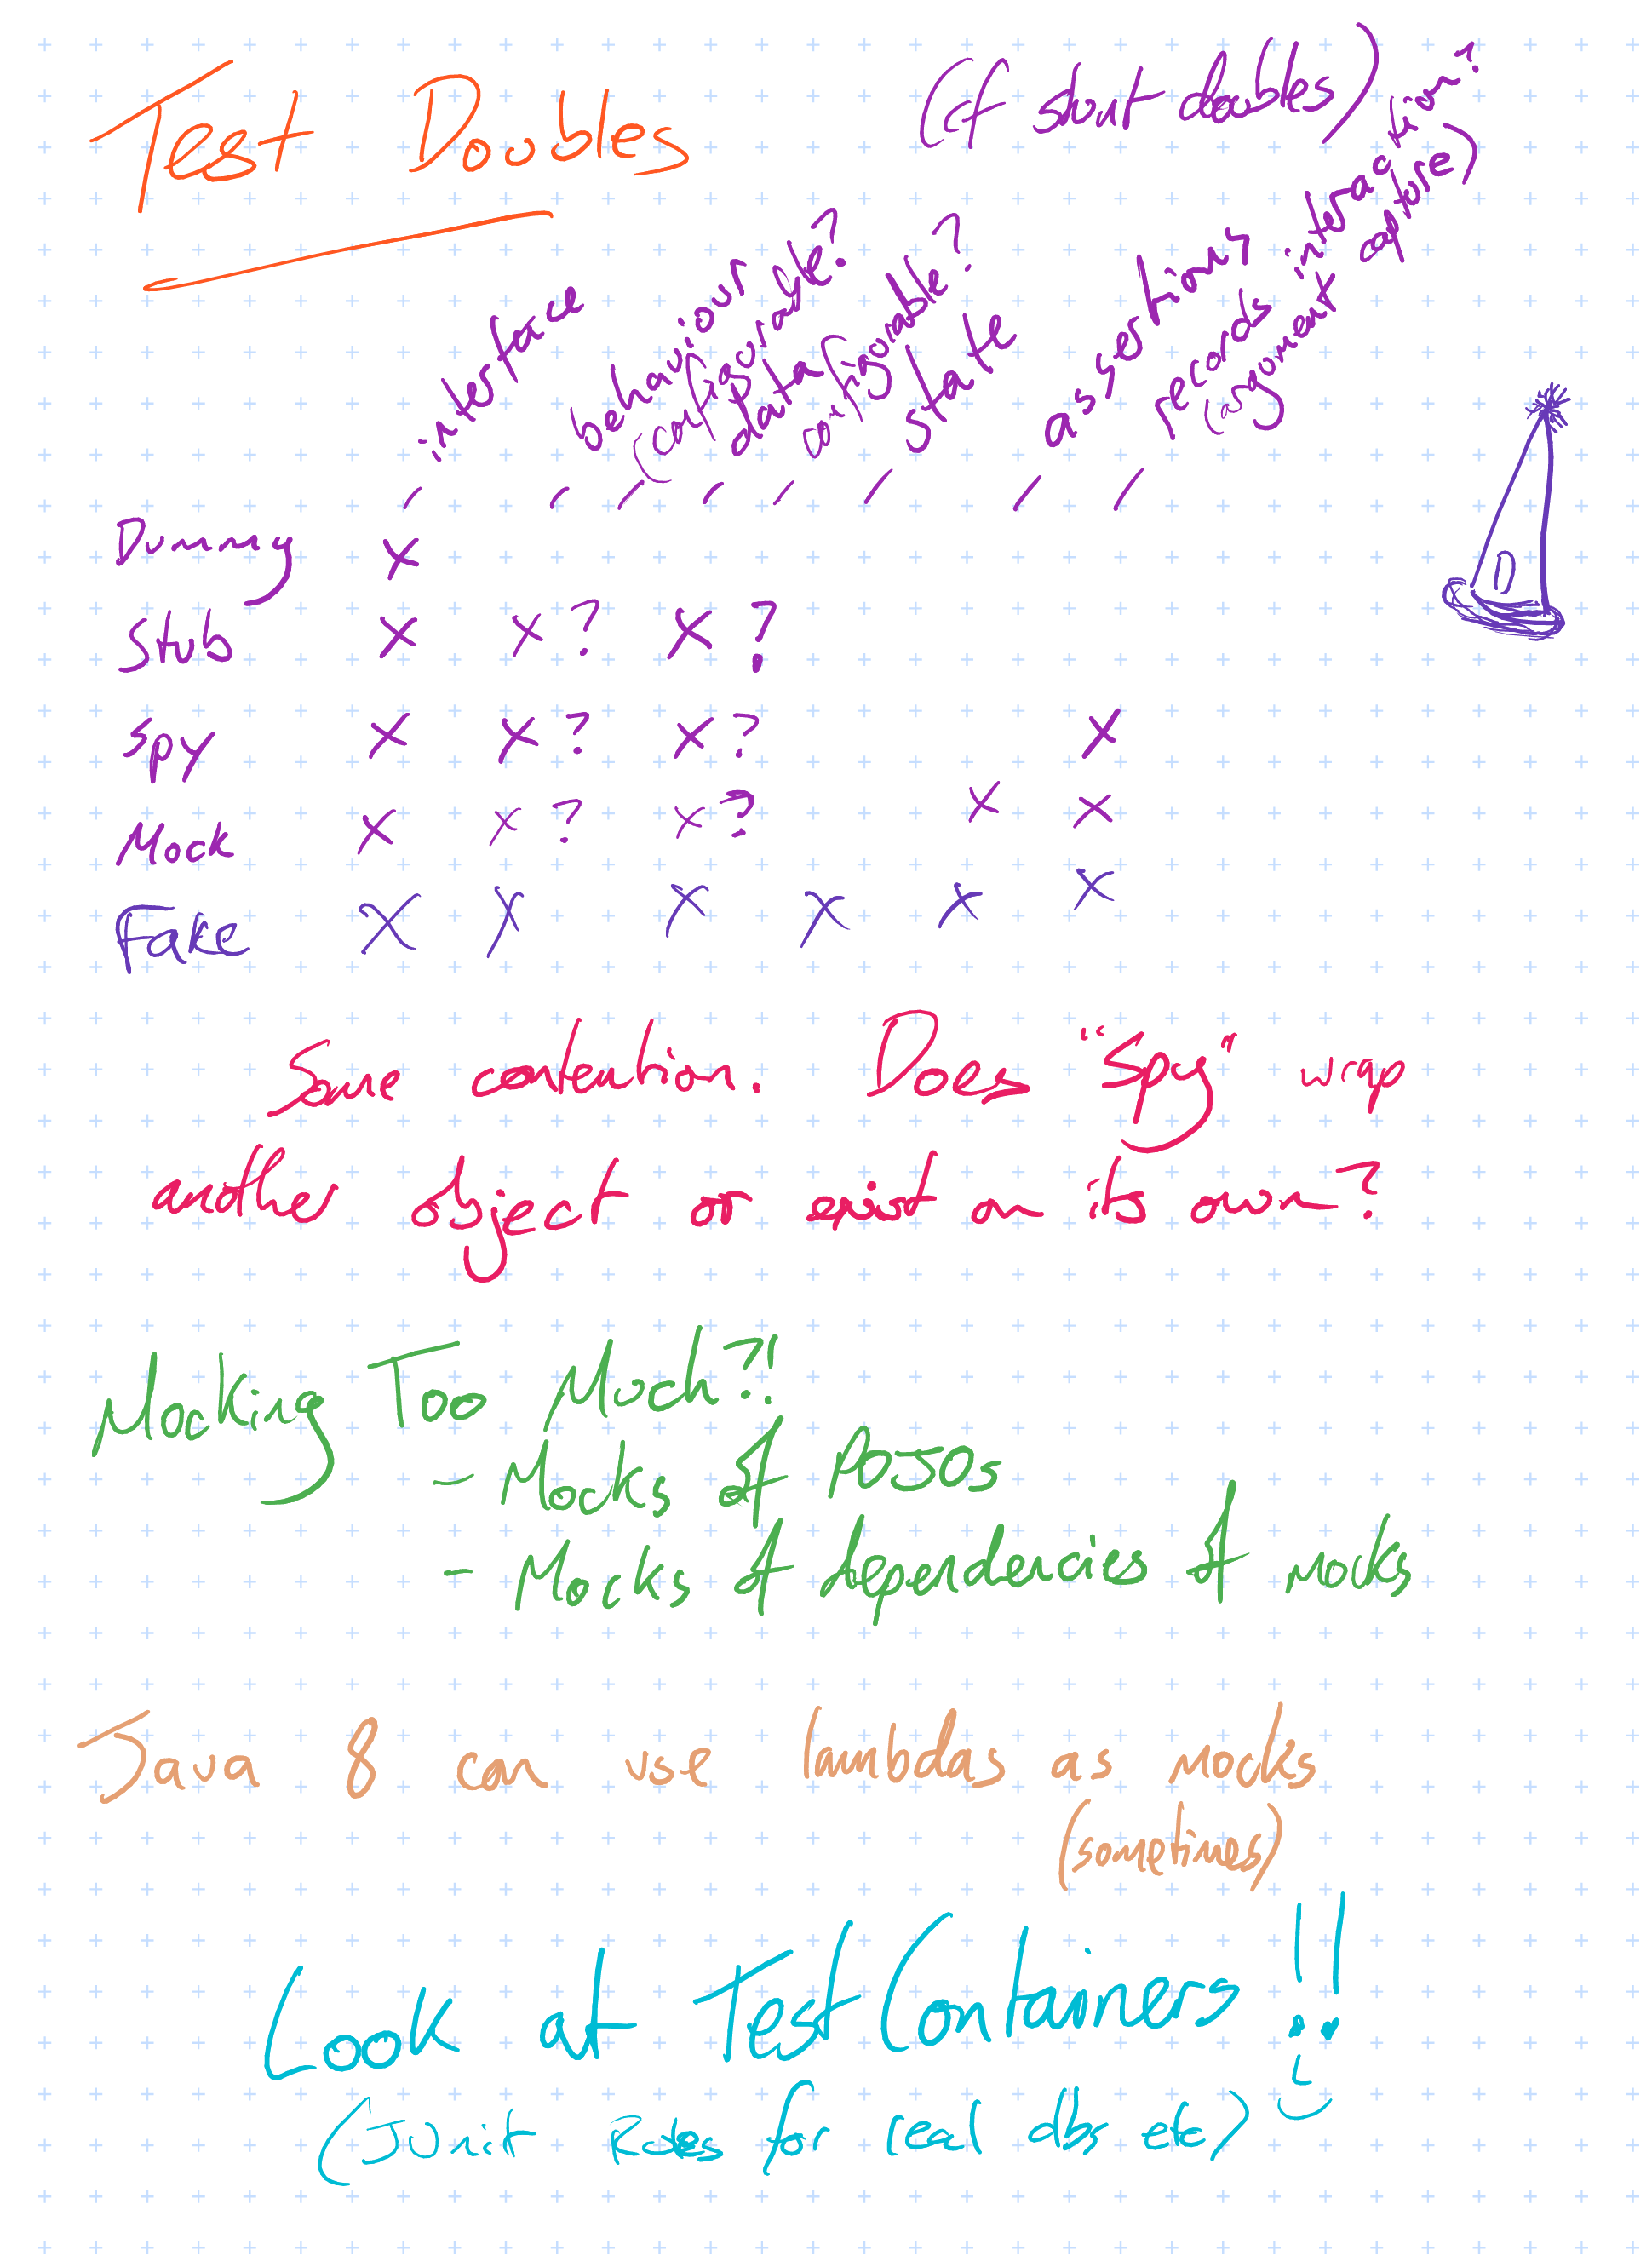 Test Doubles (cf stunt doubles)
interface
behaviour?
(configurable?
data (
configurable?
state
assertions
records interaction?
(argument capture)
Dummy X
Stub X X? X?
Spy X X? X? X
Mock X X? X? X X
Fake X X X X X X
D
Some contention. Does "Spy" wrap
another object or exist on its own?
Mocking Too Much?!
- Mocks of POJOs
- Mocks of dependencies of mocks
Java 8 can use lambdas as mocks
(sometimes)
Look at TestContainers!!
(JUnit Rules for real dbs etc)